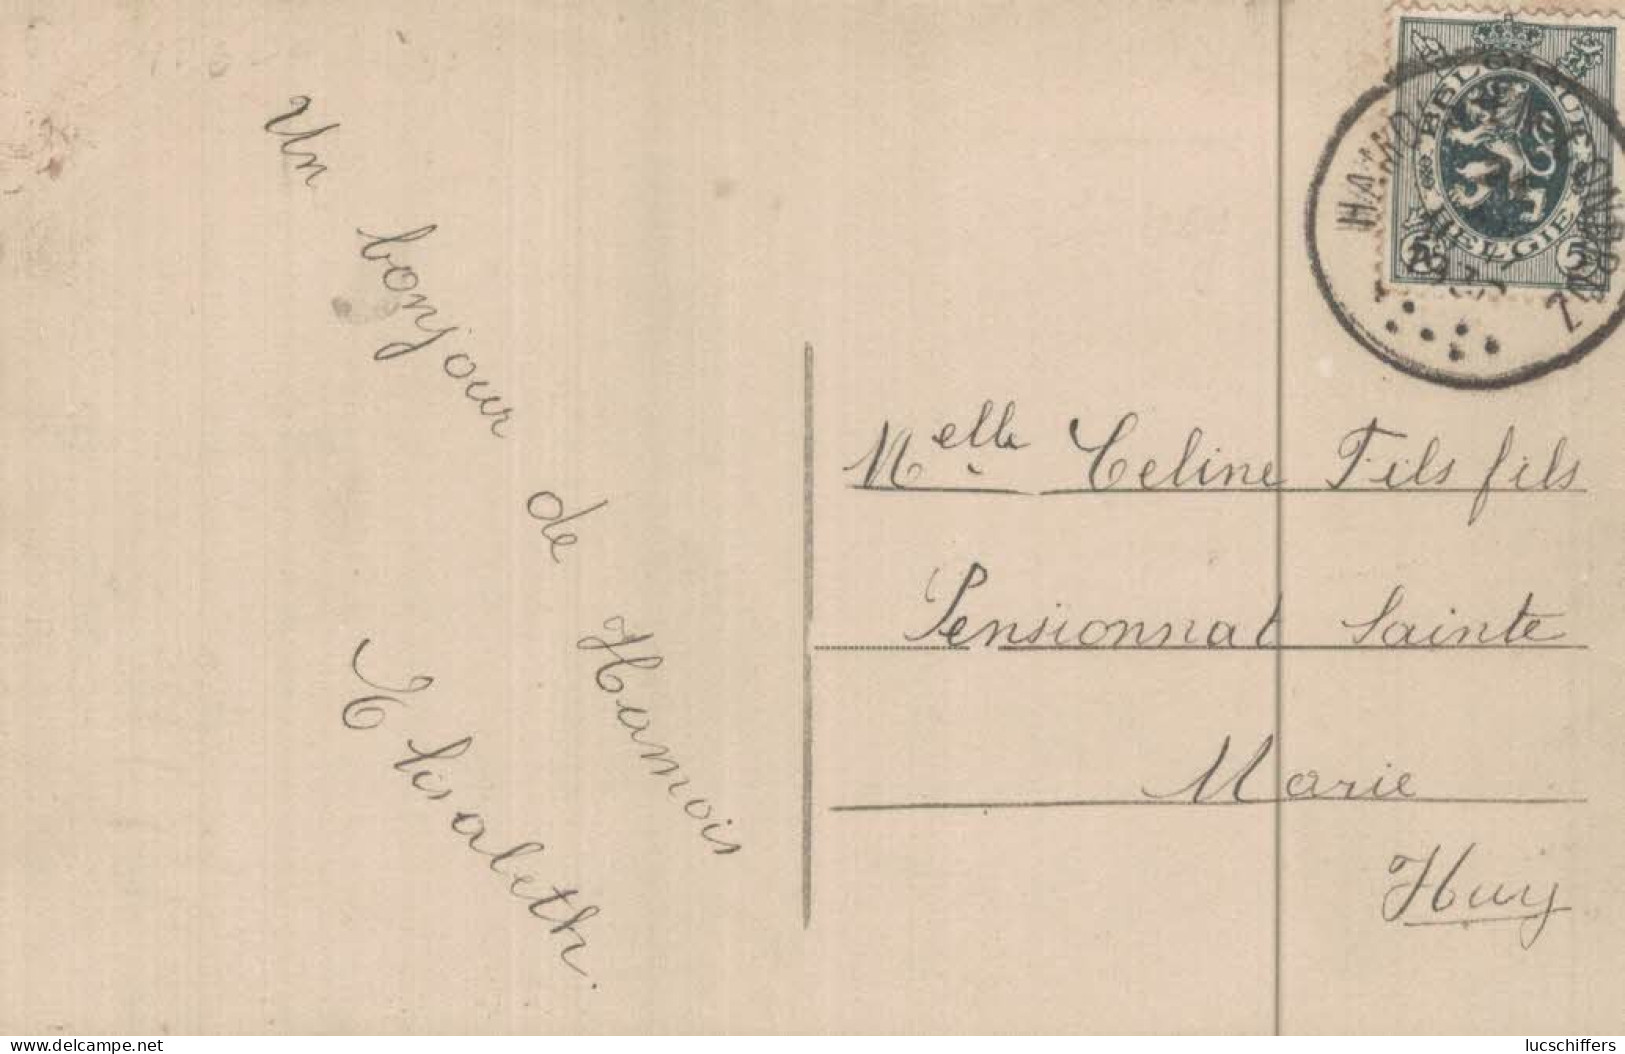 Un bonjour de Hamois
Elisabeth.
BELGIQUE
BELGIE
5 5
HAMO
CONDROZ
Melle Celine Fils fils
Pensionnat Sainte
Marie
Huy
www.delcampe.net
lucschiffers